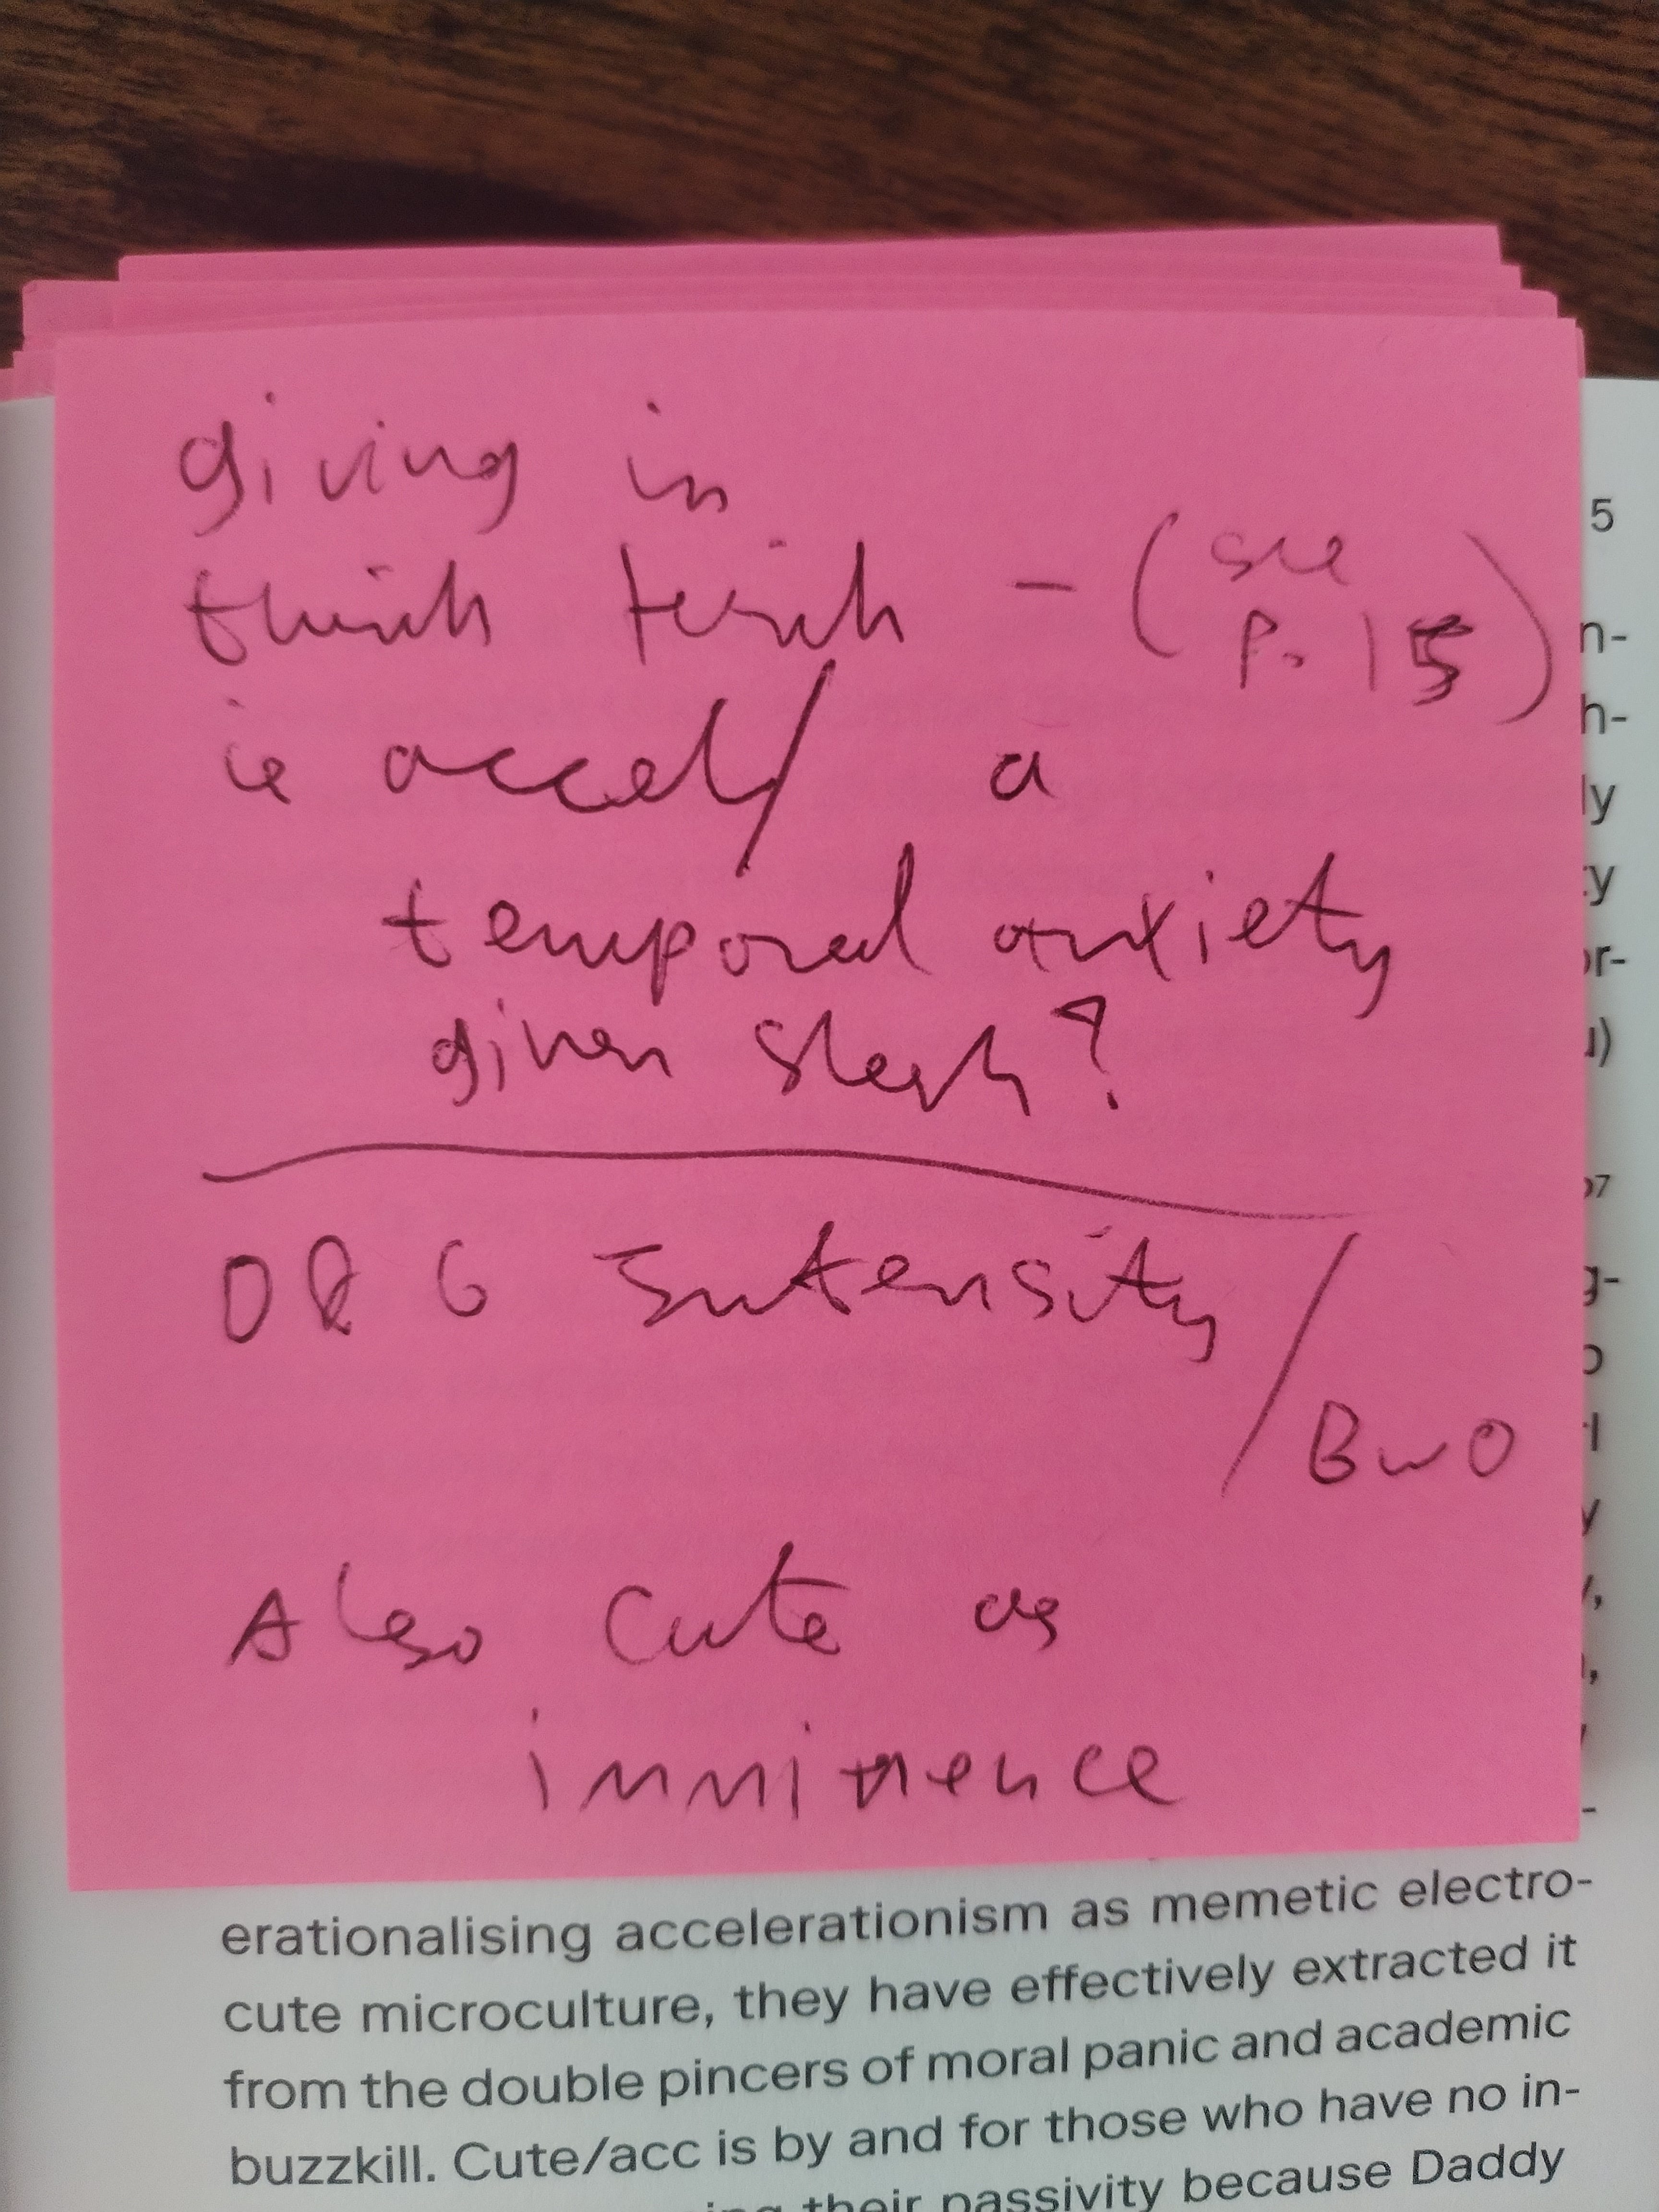 giving in
think tersih – (see
p. 15)
is accel/ a
temporal anxiety
given slash?
OR G Intensity/
BwO
Also cute as
imminence
5
n-
h-
ly
ty
or-
u)
57
g-
o
y
-
erationalising accelerationism as memetic electro-
cute microculture, they have effectively extracted it
from the double pincers of moral panic and academic
buzzkill. Cute/acc is by and for those who have no in-
their passivity because Daddy